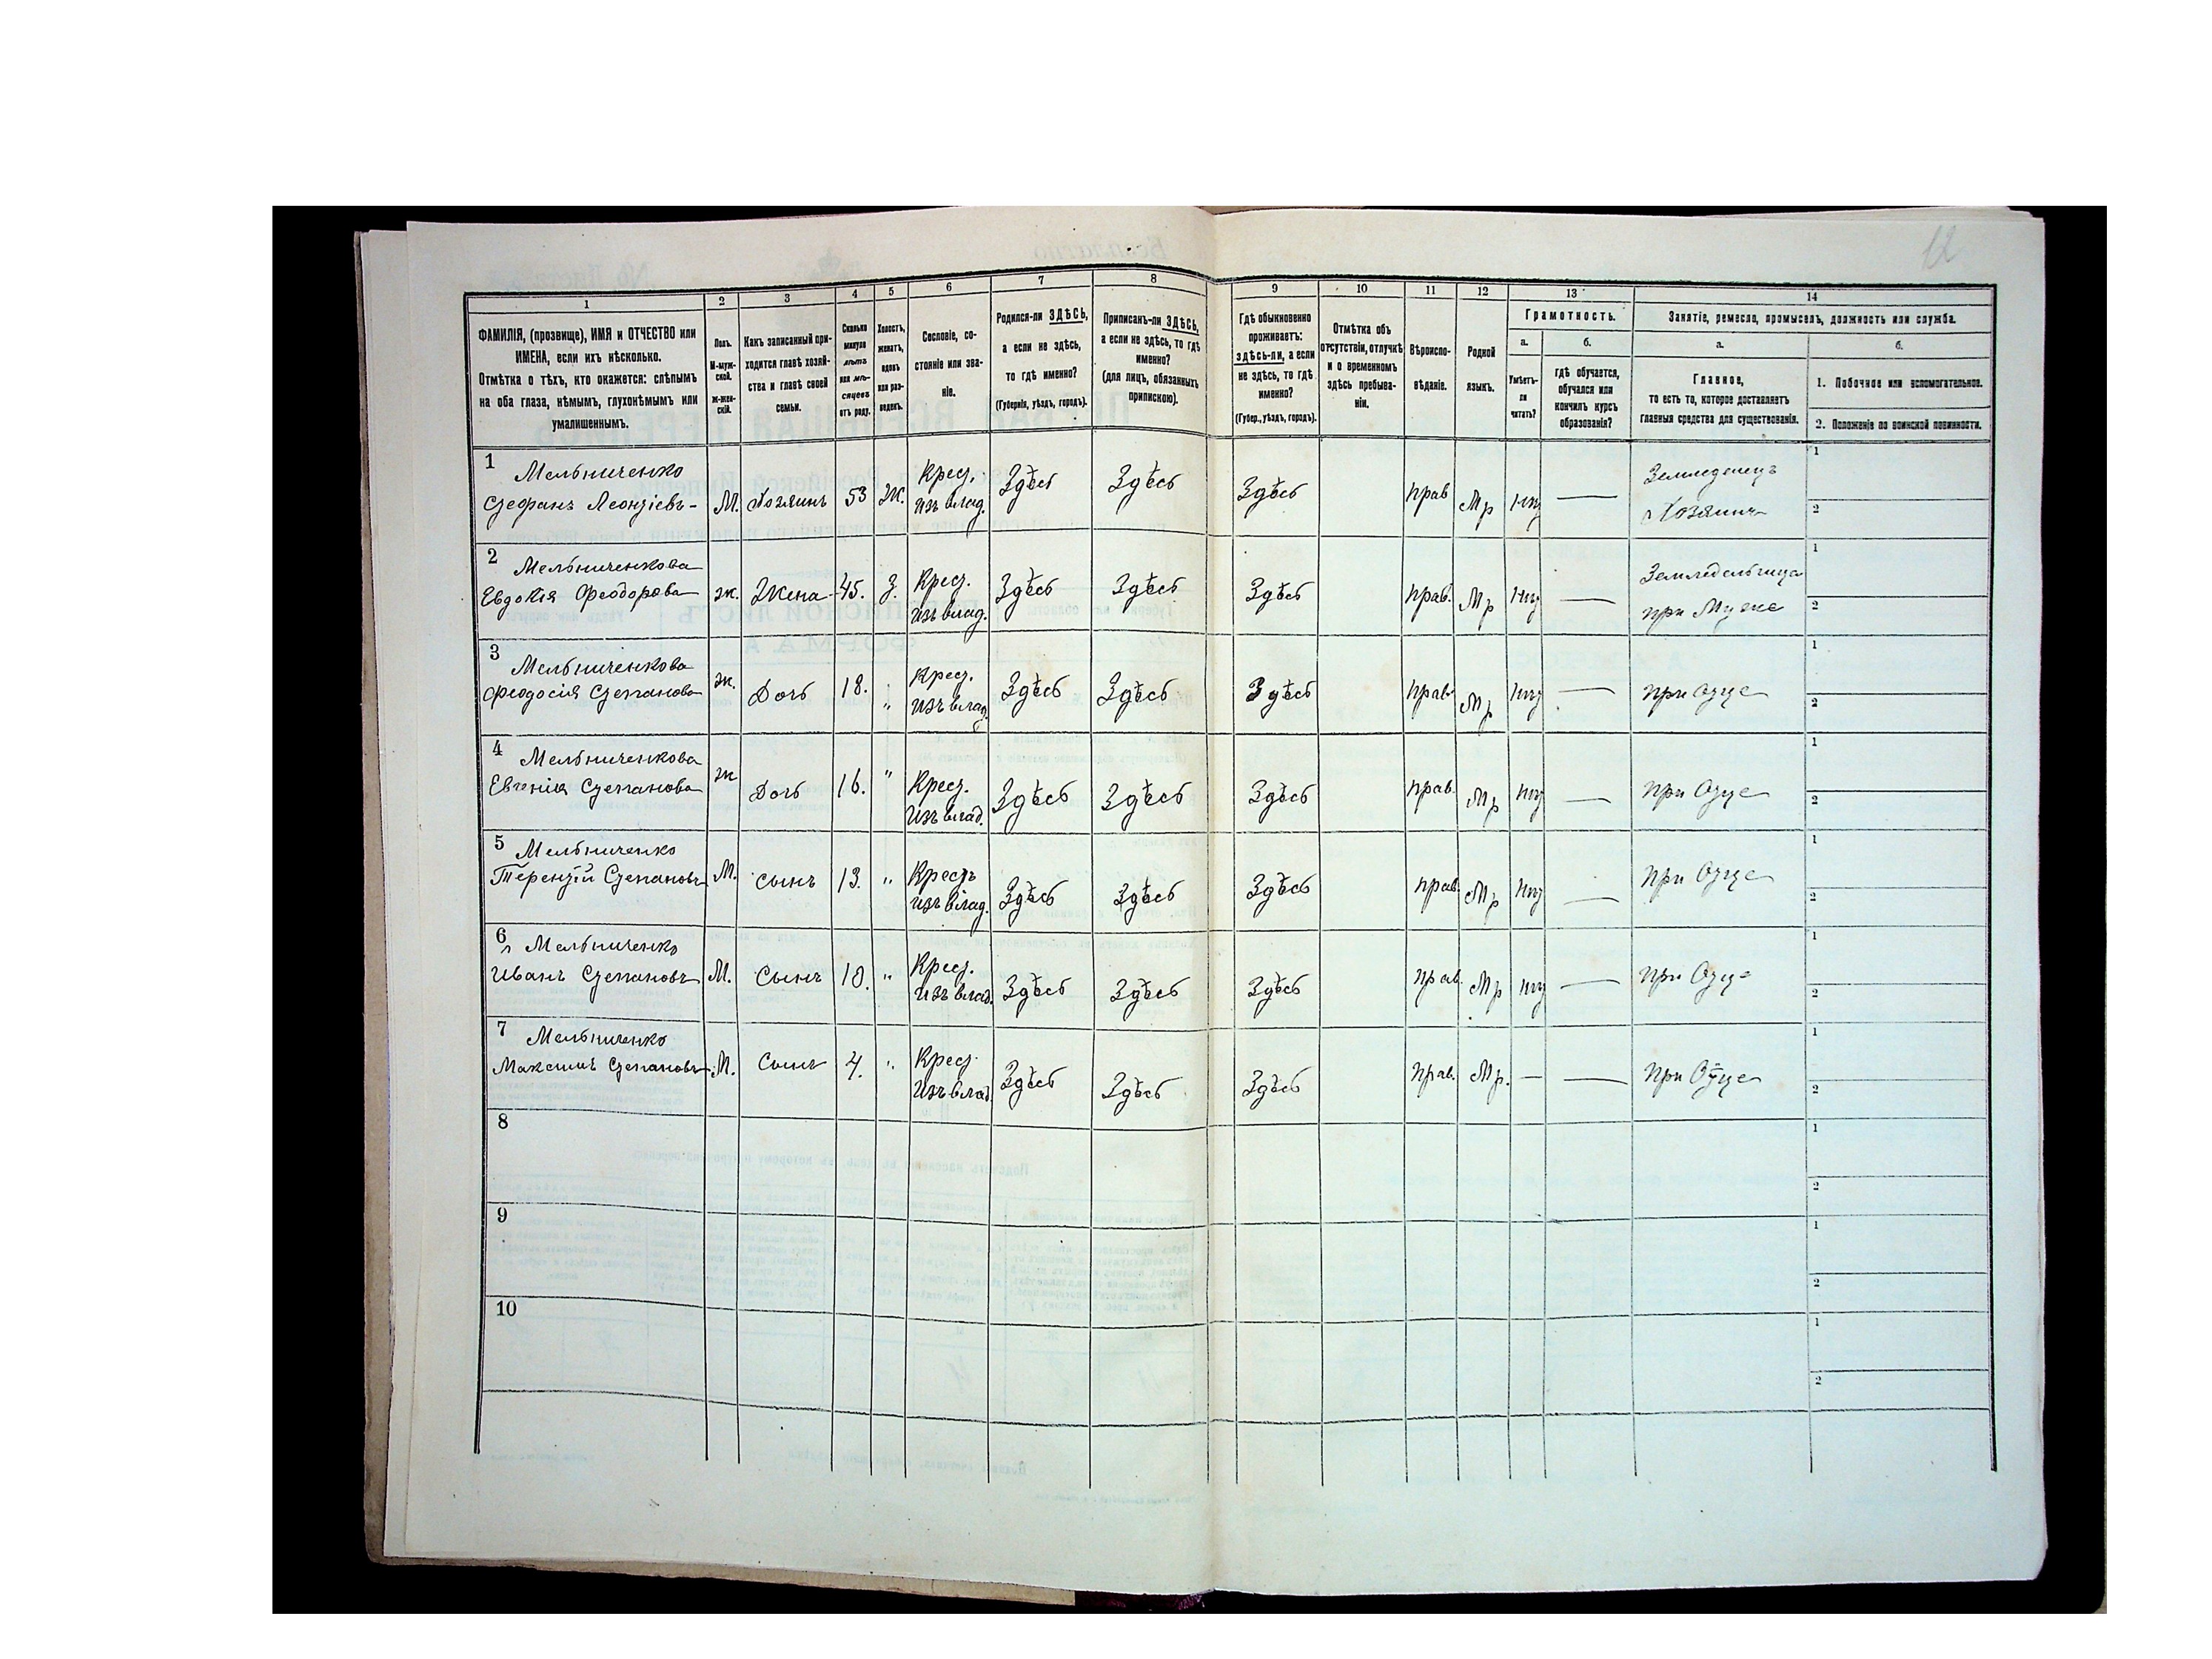 12
1 2 3 4 5 6 7 8 9 10 11 12 13 14
ФАМИЛІЯ, (прозвище), ИМЯ и ОТЧЕСТВО или
ИМЕНА, если ихъ нѣсколько.
Отмѣтка о тѣхъ, кто окажется: слѣпымъ
на оба глаза, нѣмымъ, глухонѣмымъ или
умалишеннымъ.
Полъ.
М-муж-
ской.
ж-жен-
скій.
Какъ записанный при-
ходится главѣ хозяй-
ства и главѣ своей
семьи.
Сколько
минуло
лѣтъ
или мѣ-
сяцевъ
отъ роду.
Холостъ,
женатъ,
вдовъ
или раз-
веденъ.
Сословіе, со-
стояніе или зва-
ніе.
Родился-ли ЗДѢСЬ,
а если не здѣсь,
то гдѣ именно?
(Губернія, уѣздъ, городъ).
Приписанъ-ли ЗДѢСЬ,
а если не здѣсь, то гдѣ
именно?
(для лицъ, обязанныхъ
припискою).
Гдѣ обыкновенно
проживаетъ:
здѣсь-ли, а если
не здѣсь, то гдѣ
именно?
(Губер., уѣздъ, городъ).
Отмѣтка объ
отсутствіи, отлучкѣ
и о временномъ
здѣсь пребыва-
ніи.
Вѣроиспо-
вѣданіе.
Родной
языкъ.
Грамотность.
а.
Умѣетъ-
ли
читать?
б.
гдѣ обучается,
обучался или
кончилъ курсъ
образованія?
Занятіе, ремесло, промыселъ, должность или служба.
а.
Главное,
то есть то, которое доставляетъ
главныя средства для существованія.
б.
1. Побочное или вспомогательное.
2. Положеніе по воинской повинности.
1 Мельниченко Крест. Земледелецъ 1
Стефанъ Леонтіевъ- М. Хозяинъ 53 Ж. изъ влад. Здѣсь Здѣсь Здѣсь прав Мр нѣт — Хозяинъ 2
2 Мельниченкова Крест. Земледельчица 1
Евдокія Феодорова ж. Жена 45. З. изъ влад. Здѣсь Здѣсь Здѣсь прав. Мр нѣт — при Муже 2
3 Мельниченкова Крест. 1
Феодосія Степанова ж. Дочь 18. " изъ влад. Здѣсь Здѣсь Здѣсь прав. Мр нѣт — при Отце 2
4 Мельниченкова Крест. 1
Евгенія Степанова ж Дочь 16. " изъ влад. Здѣсь Здѣсь Здѣсь прав. Мр нѣт — при Отце 2
5 Мельниченко Крестъ 1
Терентій Степановъ М. Сынъ 13. " изъ влад. Здѣсь Здѣсь Здѣсь прав. Мр нѣт — при Отце 2
6 Мельниченко Крест. 1
Иванъ Степановъ М. Сынъ 10. " изъ влад. Здѣсь Здѣсь Здѣсь прав. Мр нѣт — при Отце 2
7 Мельниченко Крест. 1
Максимъ Степановъ М. Сынъ 4. " изъ влад. Здѣсь Здѣсь Здѣсь прав. Мр. — — при Отце 2
8 1
2
9 1
2
10 1
2